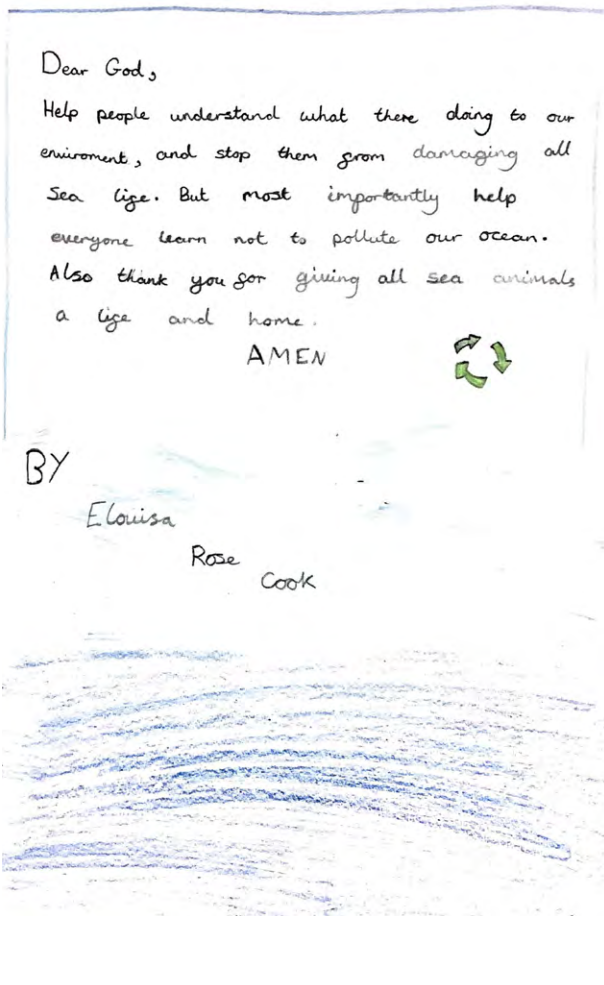 Dear God,
Help people understand what there doing to our
enviroment, and stop them from damaging all
Sea life. But most importantly help
everyone learn not to pollute our ocean.
Also thank you for giving all sea animals
a life and home.
AMEN
BY
Elouisa
Rose
Cook